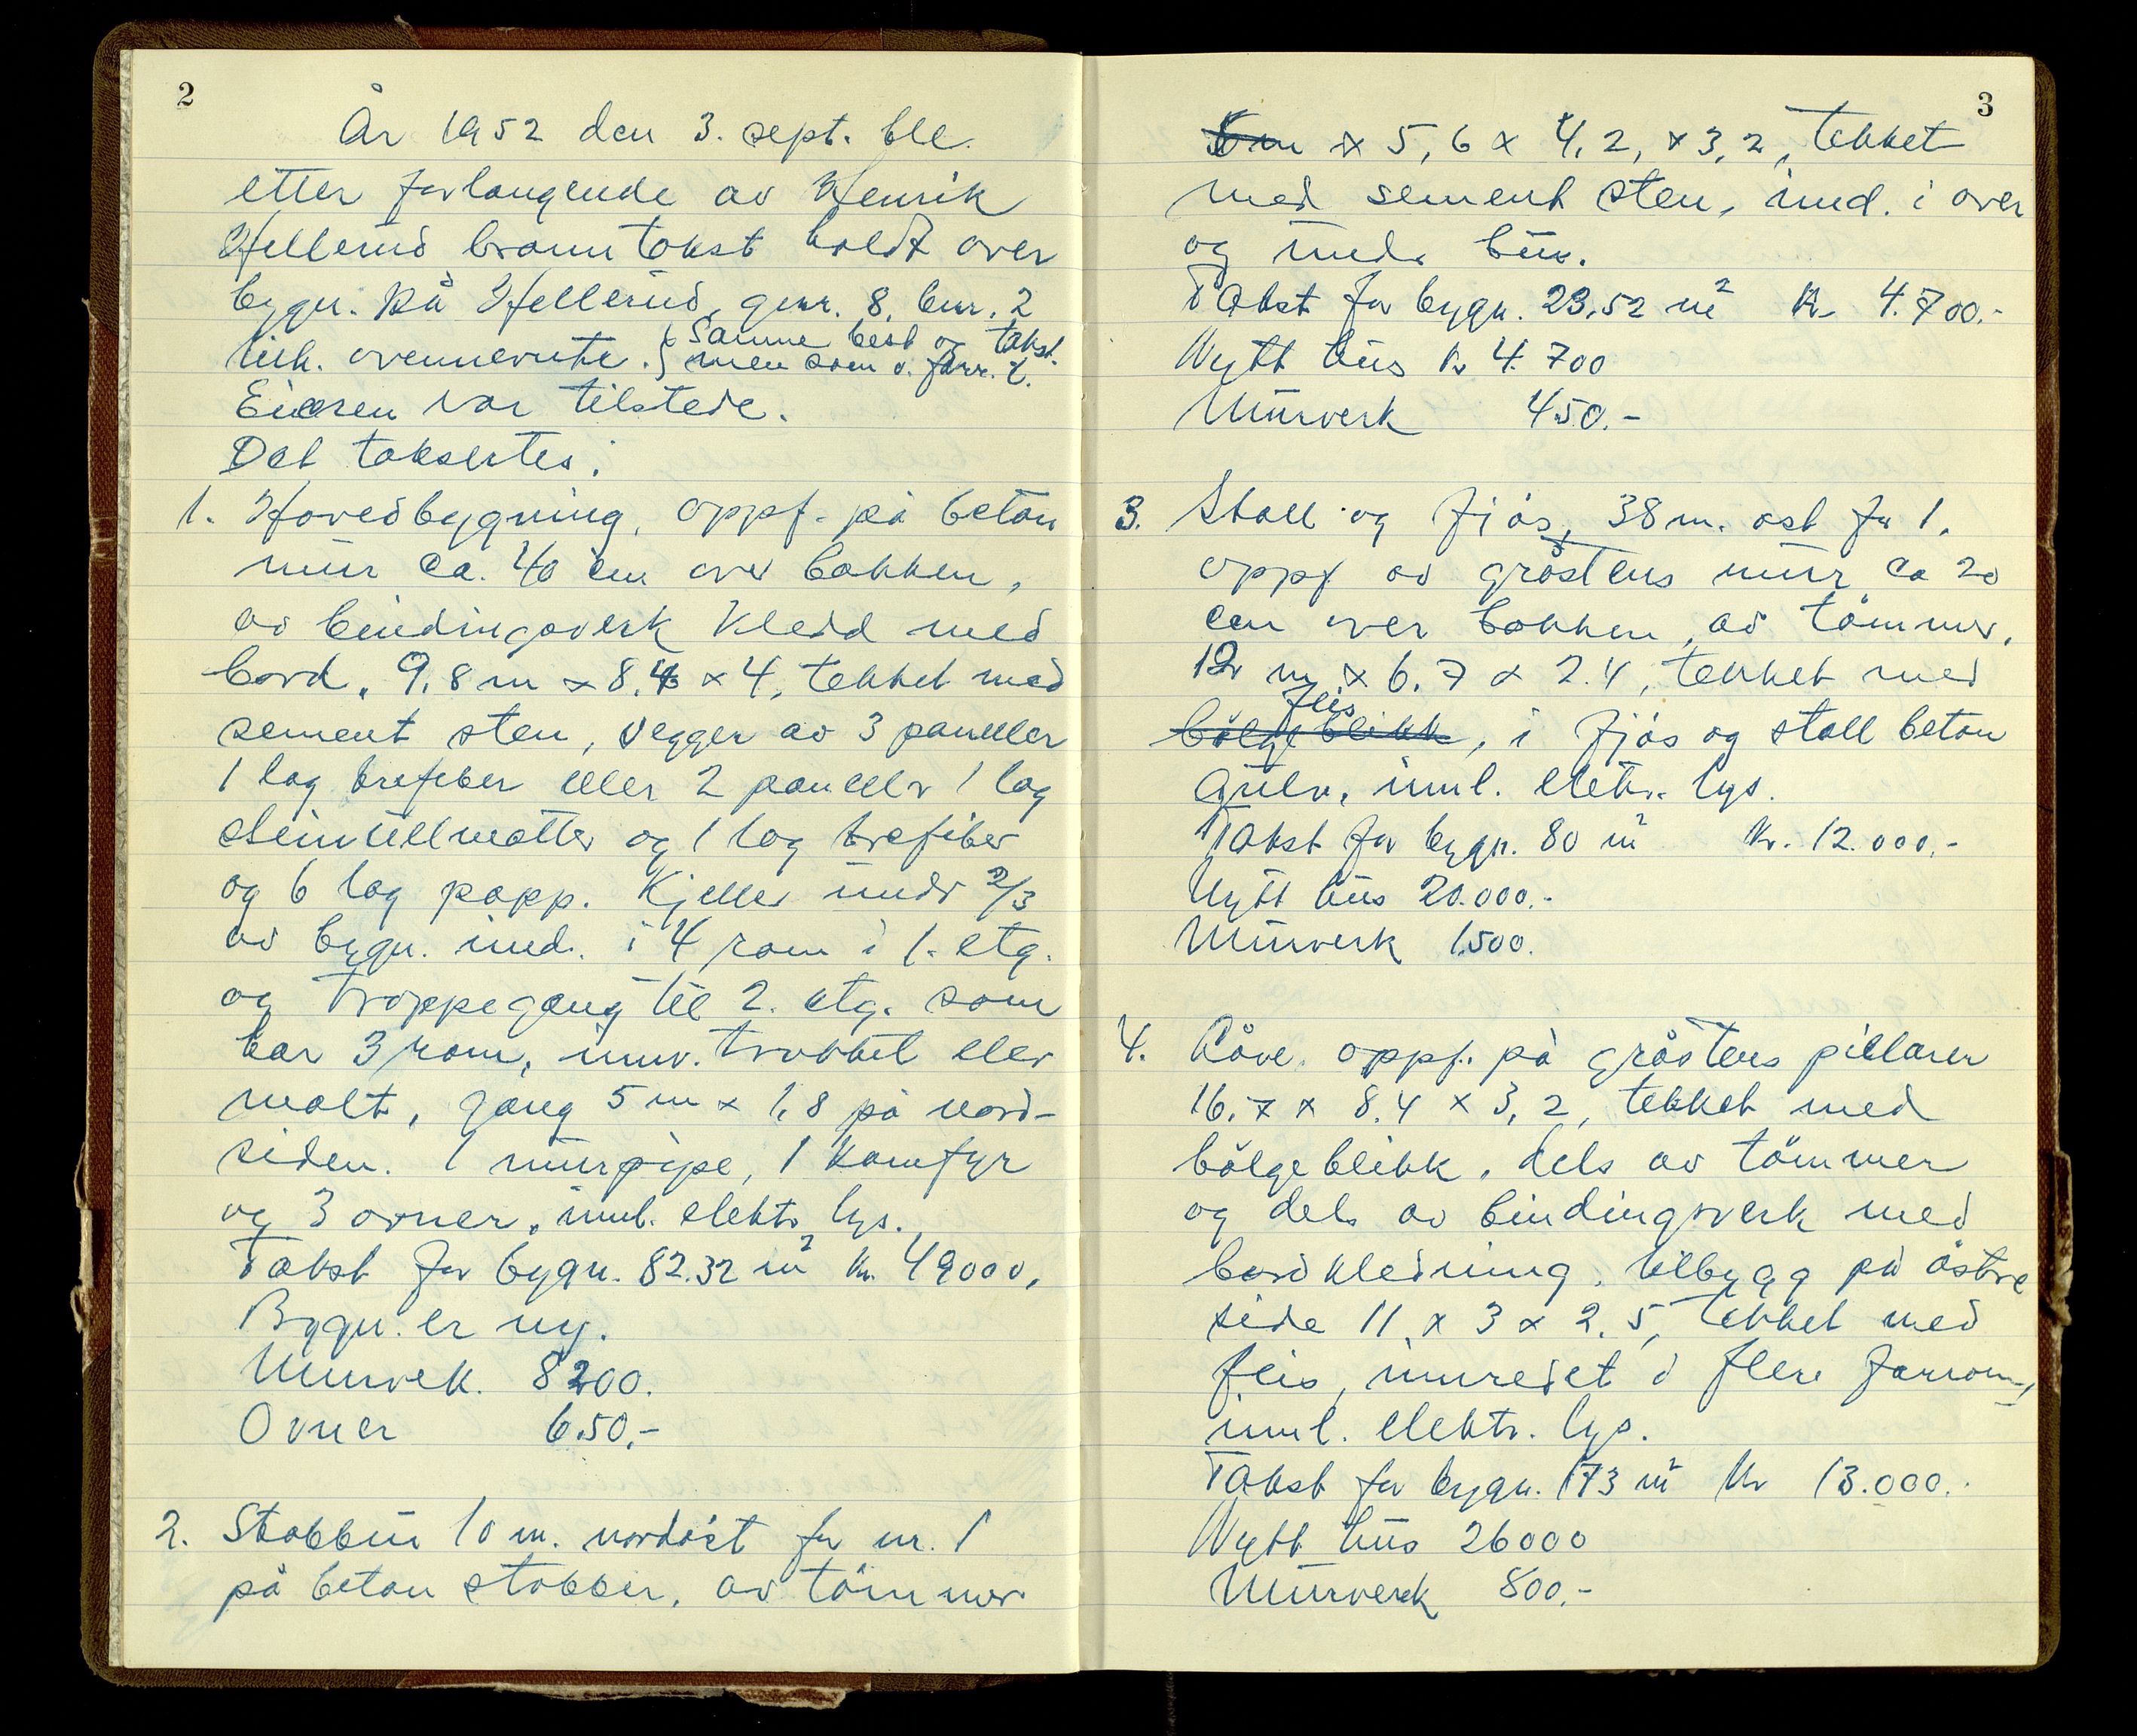 2
År 1952 den 3. sept. ble
etter forlangende av Henrik
Hellerud branntakst holdt over
bygn. på Hellerud, gnr. 8, bnr. 2
tilh. ovennevnte. (Samme best og takst-
men som v. forr. t.
Eieren var tilstede.
Det taksertes:
1. Hovedbygning, oppf. på beton
mur ca. 40 cm over bakken,
av bindingsverk kledd med
bord, 9,8 m x 8,4 x 4, tekket med
sement sten, vegger av 3 paneler
1 lag trefiber eller 2 paneler 1 lag
steinullmatter og 1 lag trefiber
og 6 lag papp. Kjeller under 2/3
av bygn. innd. i 4 rom i 1. etg.
og trappegang til 2. etg. som
har 3 rom, innv. trukket eler
malt, gang 5 m x 1,8 på nord-
siden. 1 murpipe, 1 komfyr
og 3 ovner, innl. elektr lys.
Takst for bygn. 82.32 m2 kr. 49000,
Bygn. er ny.
Murverk. 8200.
Ovner 650,-
2. Stabbur 10 m. nordøst for nr. 1
på beton stabber, av tömmer
3
5 m x 5,6 x 4,2, x 3,2, tekket
med sement sten, innd. i over
og under bur.
Takst for bygn. 23,52 m2 Kr 4.700.-
Nytt hus Kr 4.700
Murverk 450.-
3. Stall og fjös, 38 m. öst for 1.
oppf av gråstens mur ca 20
cm over bakken, av tömmer,
12 m x 6.7 x 2.4, tekket med
flis
bölgeblikk, i fjös og stall beton
gulv, innl. elektr. lys.
Takst for bygn. 80 m2 Kr. 12.000,-
Nytt hus 20.000.-
Murverk 1.500.
4. Låve, oppf. på gråstens pillarer
16.7 x 8.4 x 3,2, tekket med
bölgeblikk, dels av tömmer
og dels av bindingsverk med
bordkledning, tilbygg på östre
side 11 x 3 x 2.5, tekket med
flis, innredet i flere forrom,
innl. elektr. lys.
Takst for bygn. 173 m2 Kr 13.000.-
Nytt hus 26000
Murverk 800,-